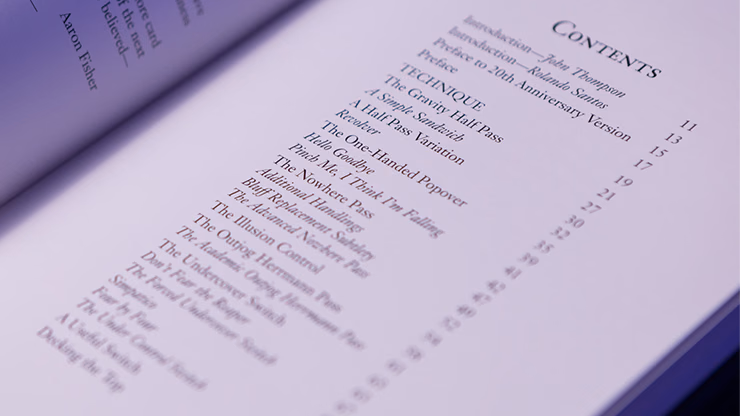 ore card
of the next
believed—
Aaron Fisher
CONTENTS
Introduction—John Thompson 11
Introduction—Rolando Santos 13
Preface to 20th Anniversary Version 15
Preface 17
TECHNIQUE 19
The Gravity Half Pass 21
A Simple Sandwich 27
A Half Pass Variation 30
Revolver 32
The One-Handed Popover 35
Hello Goodbye 39
Pinch Me, I Think I'm Falling 41
The Nowhere Pass
Additional Handlings
Bluff Replacement Subtlety
The Advanced Nowhere Pass
The Illusion Control
The Outjog Herrmann Pass
The Academic Outjog Herrmann Pass
The Undercover Switch
Don't Fear the Reaper
The Forced Undercover Switch
Sympatico
Four by Four
The Under Control Switch
A Useful Switch
Decking the Top